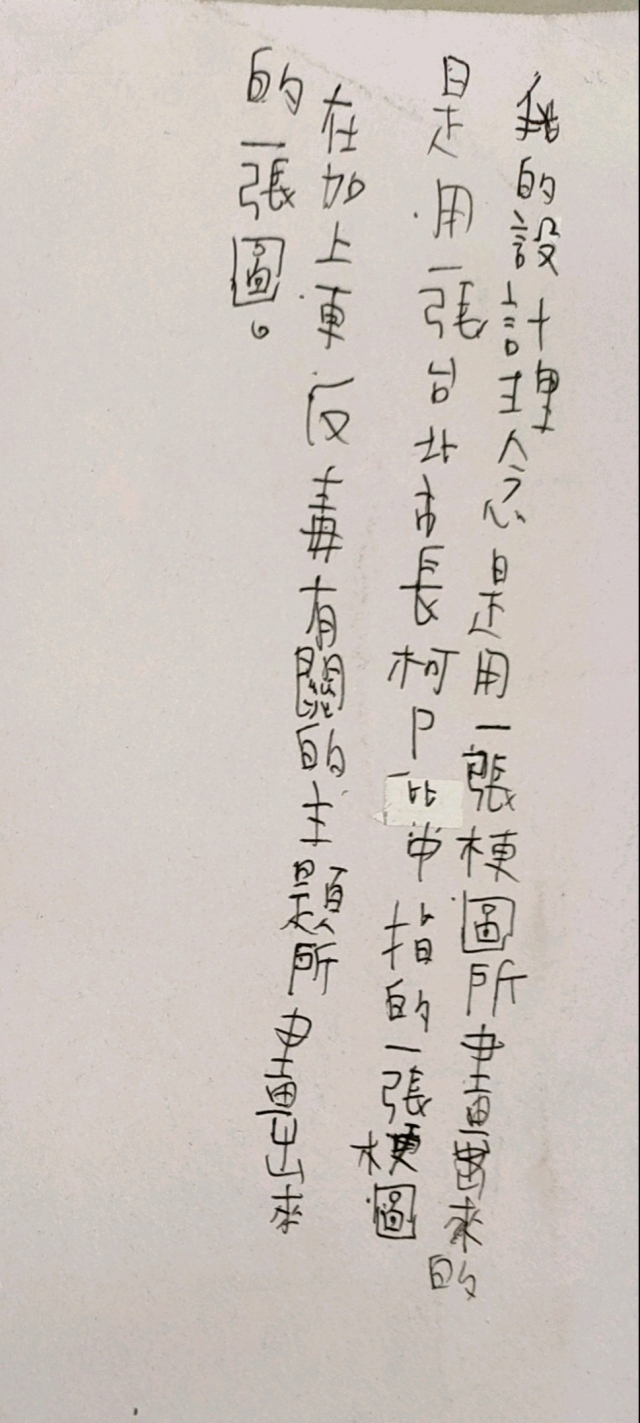 我的設計理念是用一張梗圖所畫出來的
是用一張台北市長柯P比中指的一張梗圖
在加上更反毒有關的主題所畫出來
的一張圖。